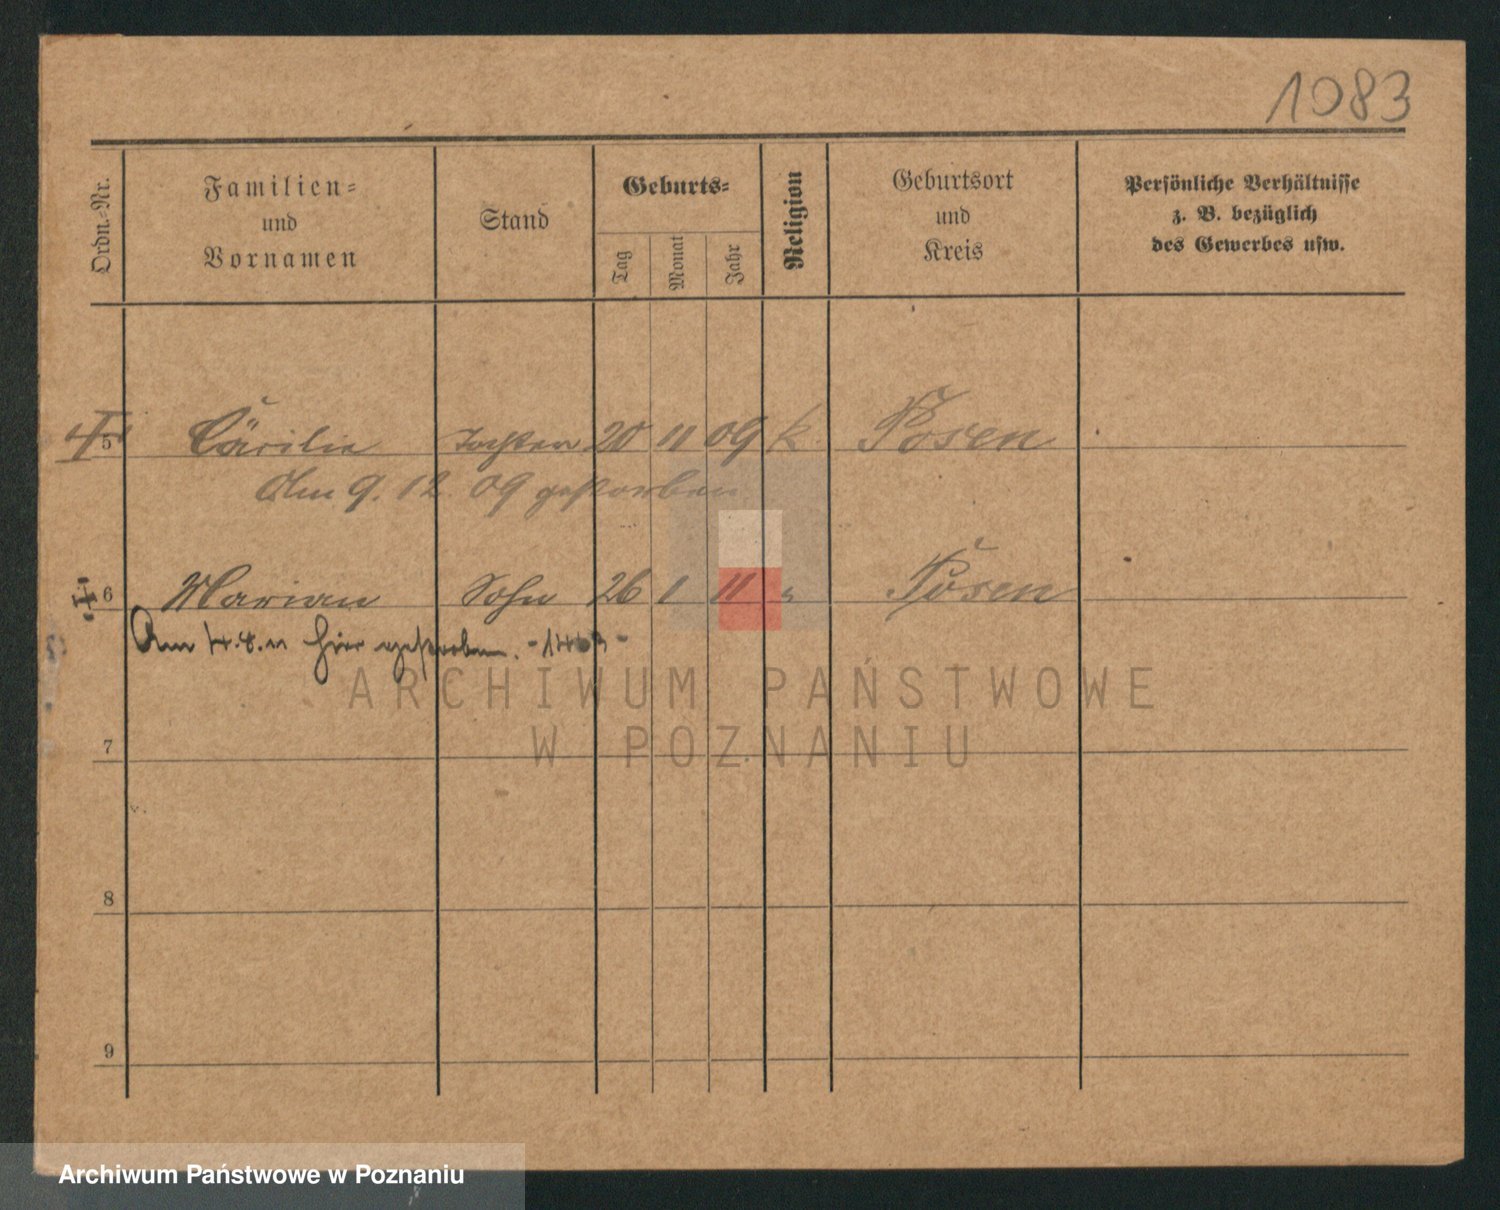 1083
Ordn.-Nr.
Familien-
und
Vornamen
Stand
Geburts-
Tag
Monat
Jahr
Religion
Geburtsort
und
Kreis
Persönliche Verhältnisse
z. B. bezüglich
des Gewerbes usw.
5 Cäcilie Tochter 20 11 09 k. Posen
Am 9. 12. 09 gestorben
6 Marian Sohn 26 1 11 " Posen
Am 4.8.11 hier gestorben.
ARCHIWUM PAŃSTWOWE
W POZNANIU
7
8
9
Archiwum Państwowe w Poznaniu